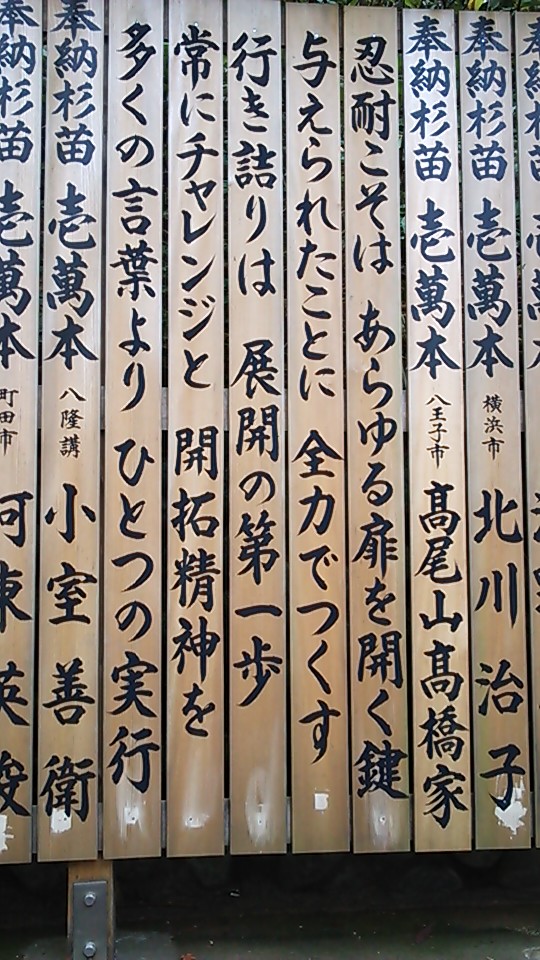 奉納杉苗 壱萬本 横浜市 北川治子
奉納杉苗 壱萬本 八王子市 髙尾山髙橋家
忍耐こそは あらゆる扉を開く鍵
与えられたことに 全力でつくす
行き詰りは 展開の第一歩
常にチャレンジと 開拓精神を
多くの言葉より ひとつの実行
奉納杉苗 壱萬本 八隆講 小室善衛
奉納杉苗 壱萬本 町田市 河東英俊